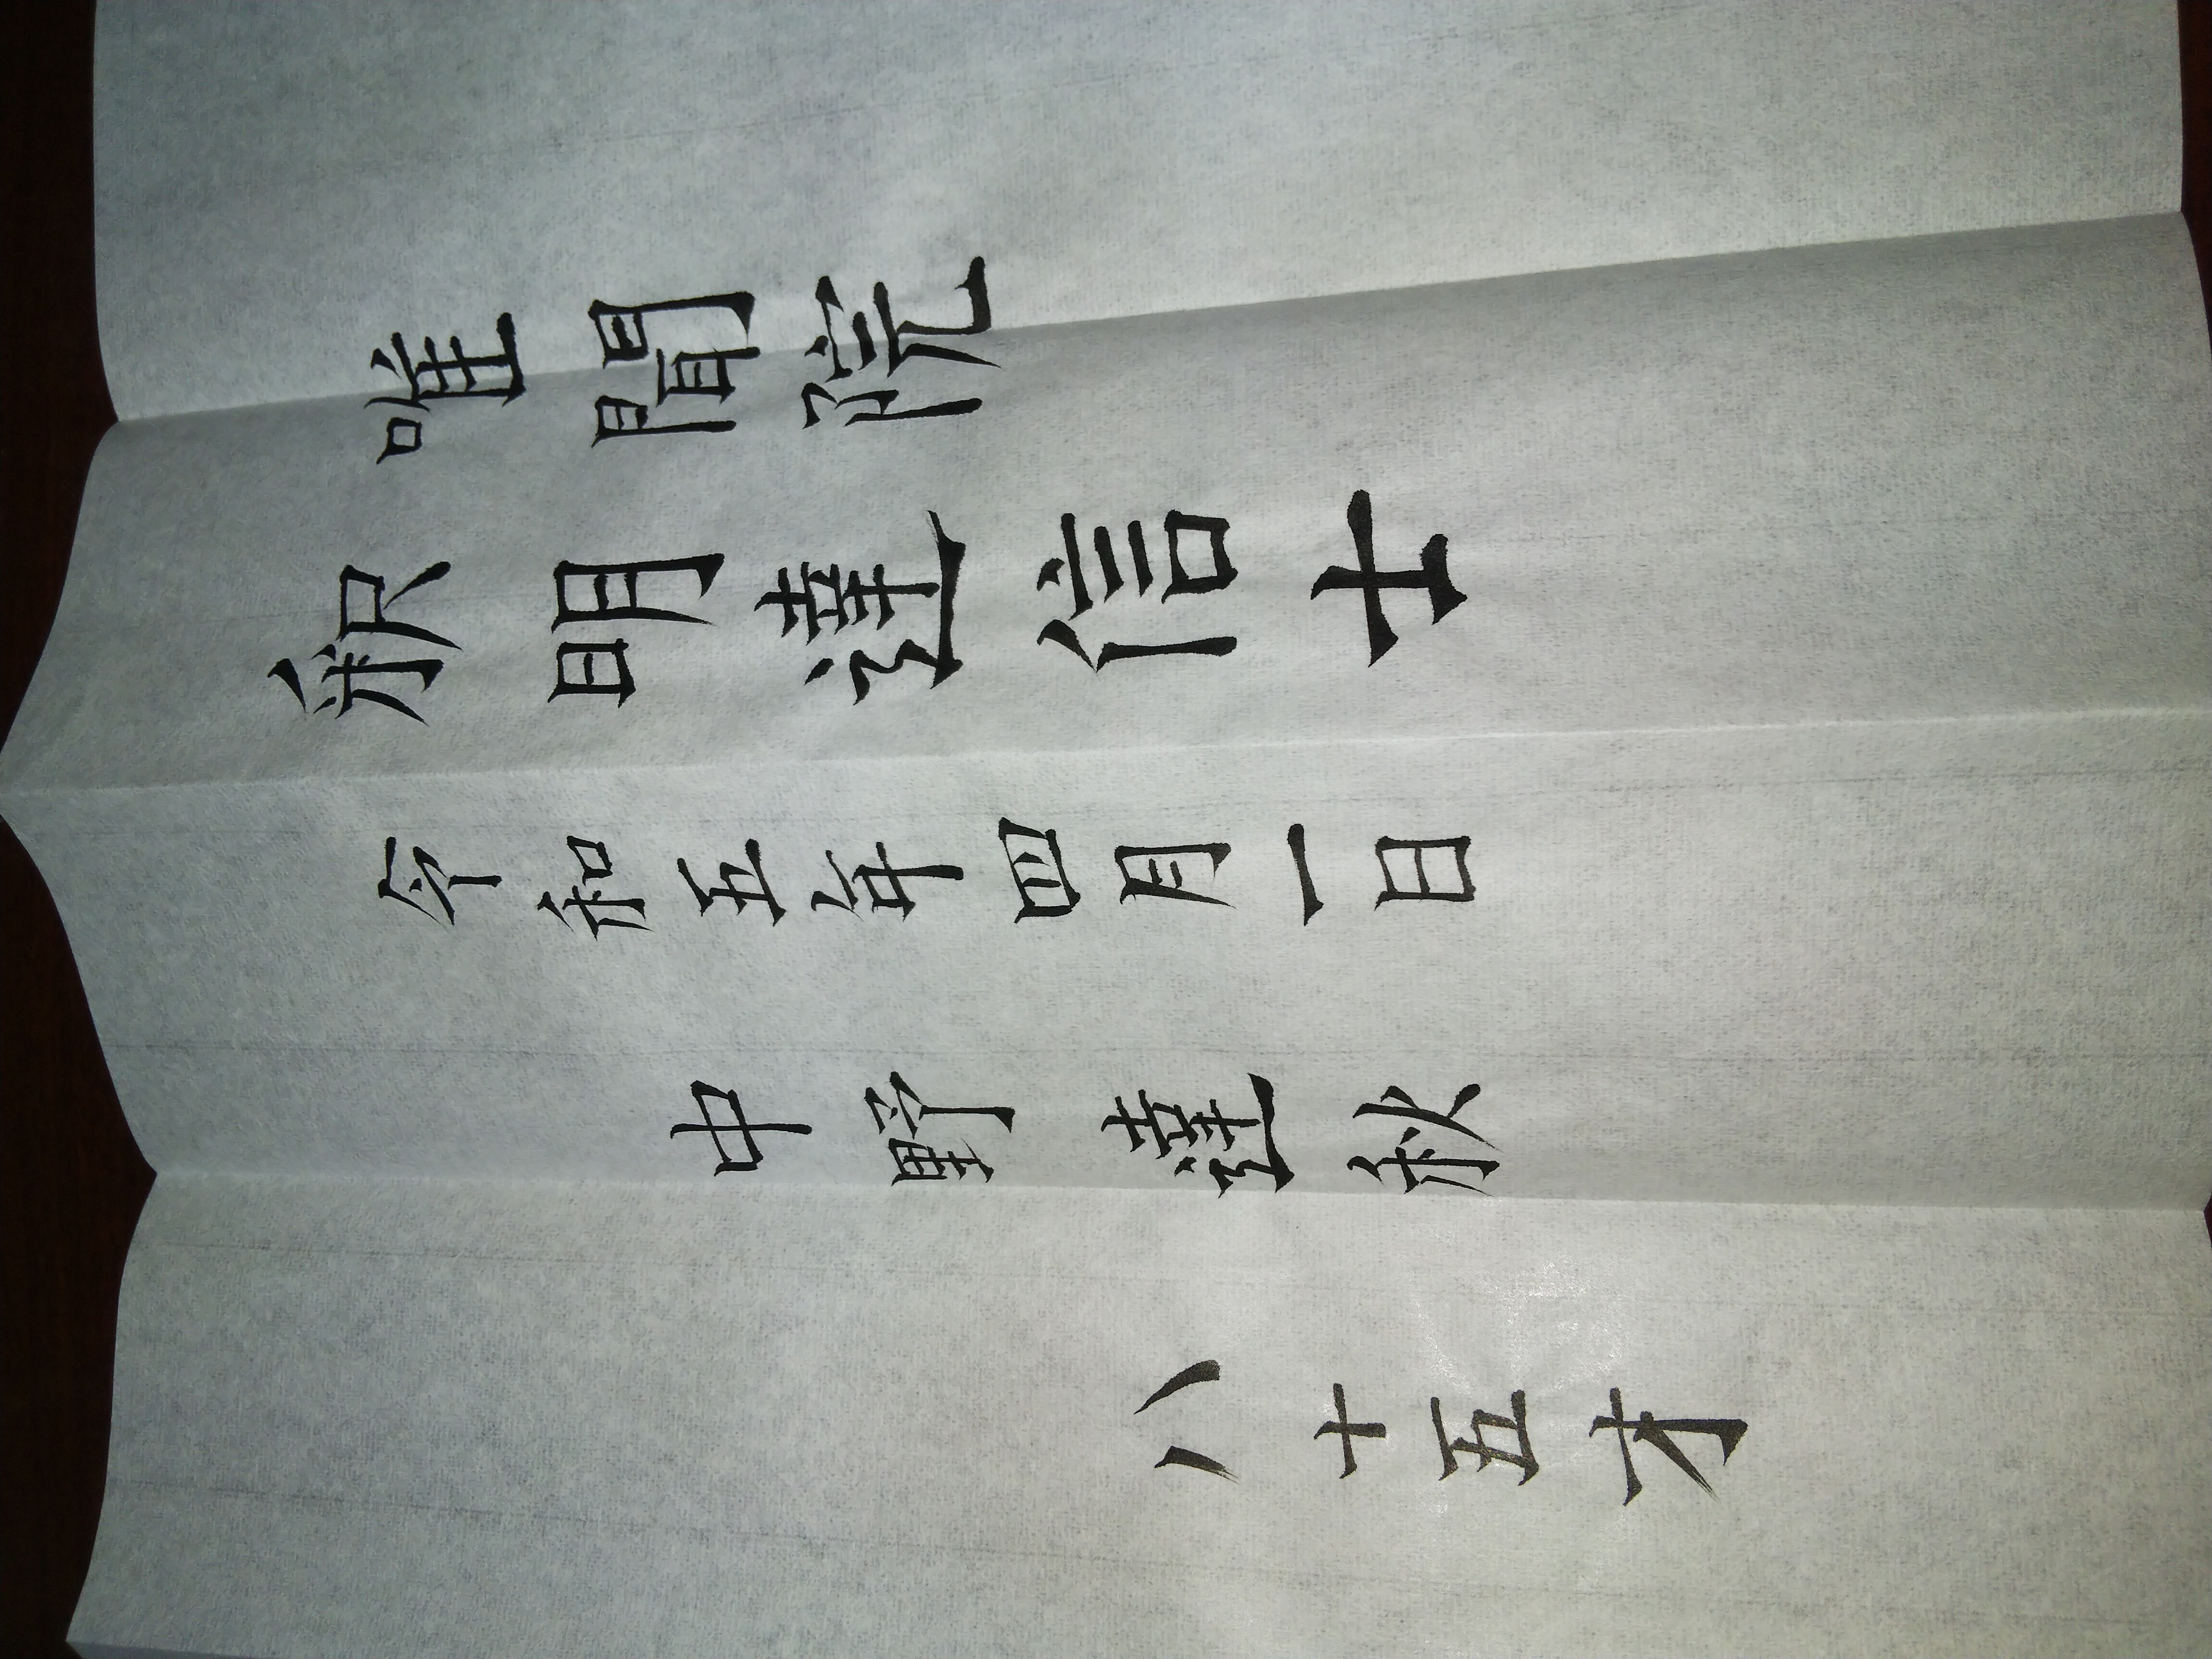 唯聞院
釈明達信士
令和五年四月一日
中野達秋
八十五才